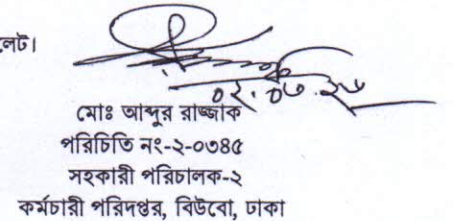 লেট।
০২.০৩.২৬
মোঃ আব্দুর রাজ্জাক
পরিচিতি নং-২-০৩৪৫
সহকারী পরিচালক-২
কর্মচারী পরিদপ্তর, বিউবো, ঢাকা